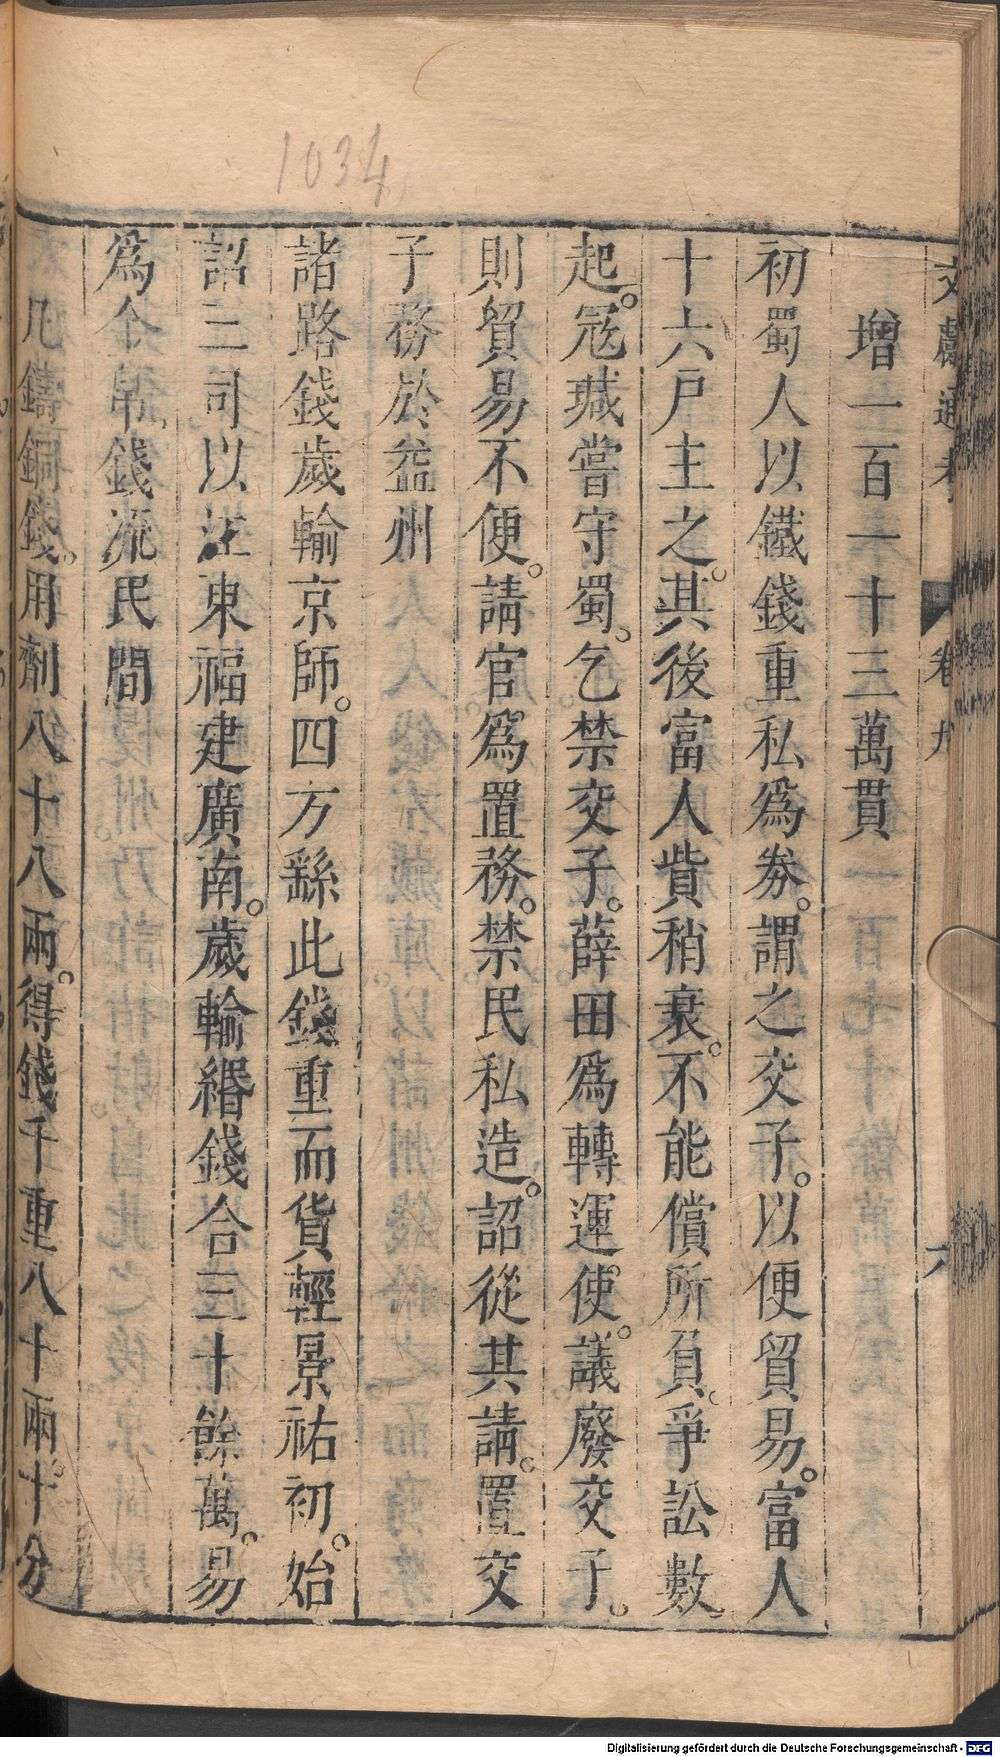 1034
文獻通考 卷九 六
增一百一十三萬貫
初蜀人以鐵錢重私爲券。謂之交子。以便貿易。富人
十六戶主之。其後富人貲稍衰。不能償所負。爭訟數
起。冦瑊嘗守蜀。乞禁交子。薛田爲轉運使。議廢交子。
則貿易不便。請官爲置務。禁民私造。詔從其請。置交
子務於益州
諸路錢歲輸京師。四方繇此錢重而貨輕景祐初。始
詔三司以江東福建廣南。歲輸緡錢合三十餘萬。易
爲金帛錢流民間
凡鑄銅錢。用劑八十八兩。得錢千重八十兩。十分
Digitalisierung gefördert durch die Deutsche Forschungsgemeinschaft - DFG